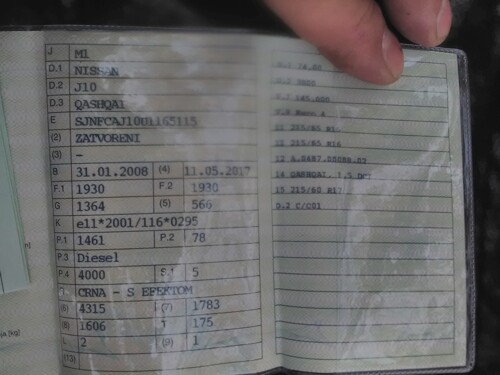 J M1
D.1 NISSAN
D.2 J10
D.3 QASHQAI
E SJNFCAJ10U1165115
(2) ZATVORENI
(3) -
B 31.01.2008 (4) 11.05.2017
F.1 1930 F.2 1930
G 1364 (5) 566
K e11*2001/116*0295
P.1 1461 P.2 78
P.3 Diesel
P.4 4000 S.1 5
CRNA - S EFEKTOM
(6) 4315 (7) 1783
(8) 1606 175
L 2 (9) 1
(13)
11 215/65 R16
14 QASHQAI, 1,5 DCI
15 215/60 R17
D.2 C/C01